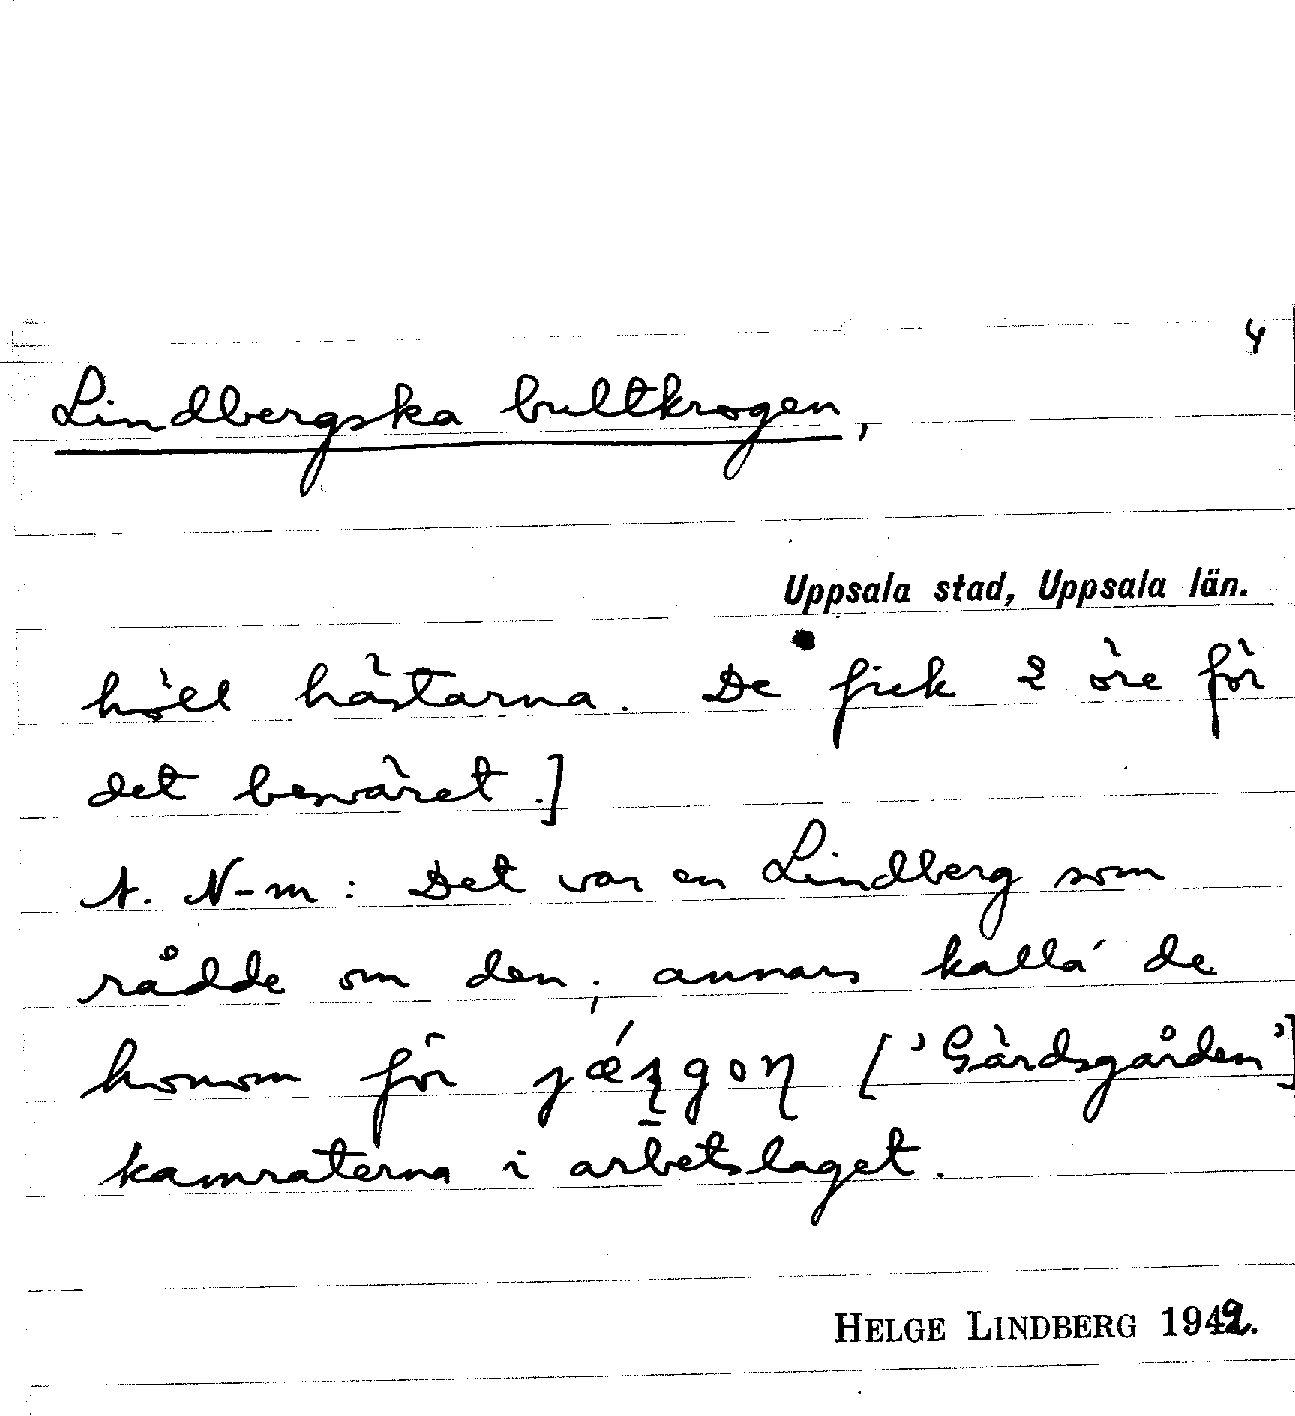 4
Lindbergska bultkrogen,
Uppsala stad, Uppsala län.
höll hästarna. De fick 2 öre för
det besväret.]
A. N-m: Det var en Lindberg som
rådde om den; annars kalla' de
honom för ['Gärdsgården']
kamraterna i arbetslaget.
HELGE LINDBERG 1942.